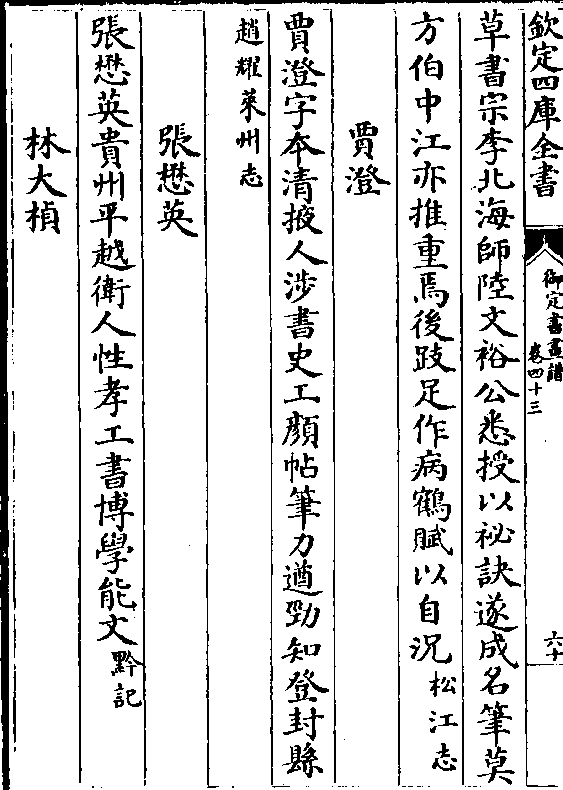 欽定四庫全書
御定書畫譜
卷四十三
六十
草書宗李北海師陸文裕公悉授以祕訣遂成名筆莫
方伯中江亦推重焉後跂足作病鶴賦以自況松江志
賈澄
賈澄字本清掖人涉書史工顔帖筆力遒勁知登封縣
趙耀萊州志
張懋英
張懋英貴州平越衛人性孝工書博學能文黔記
林大楨